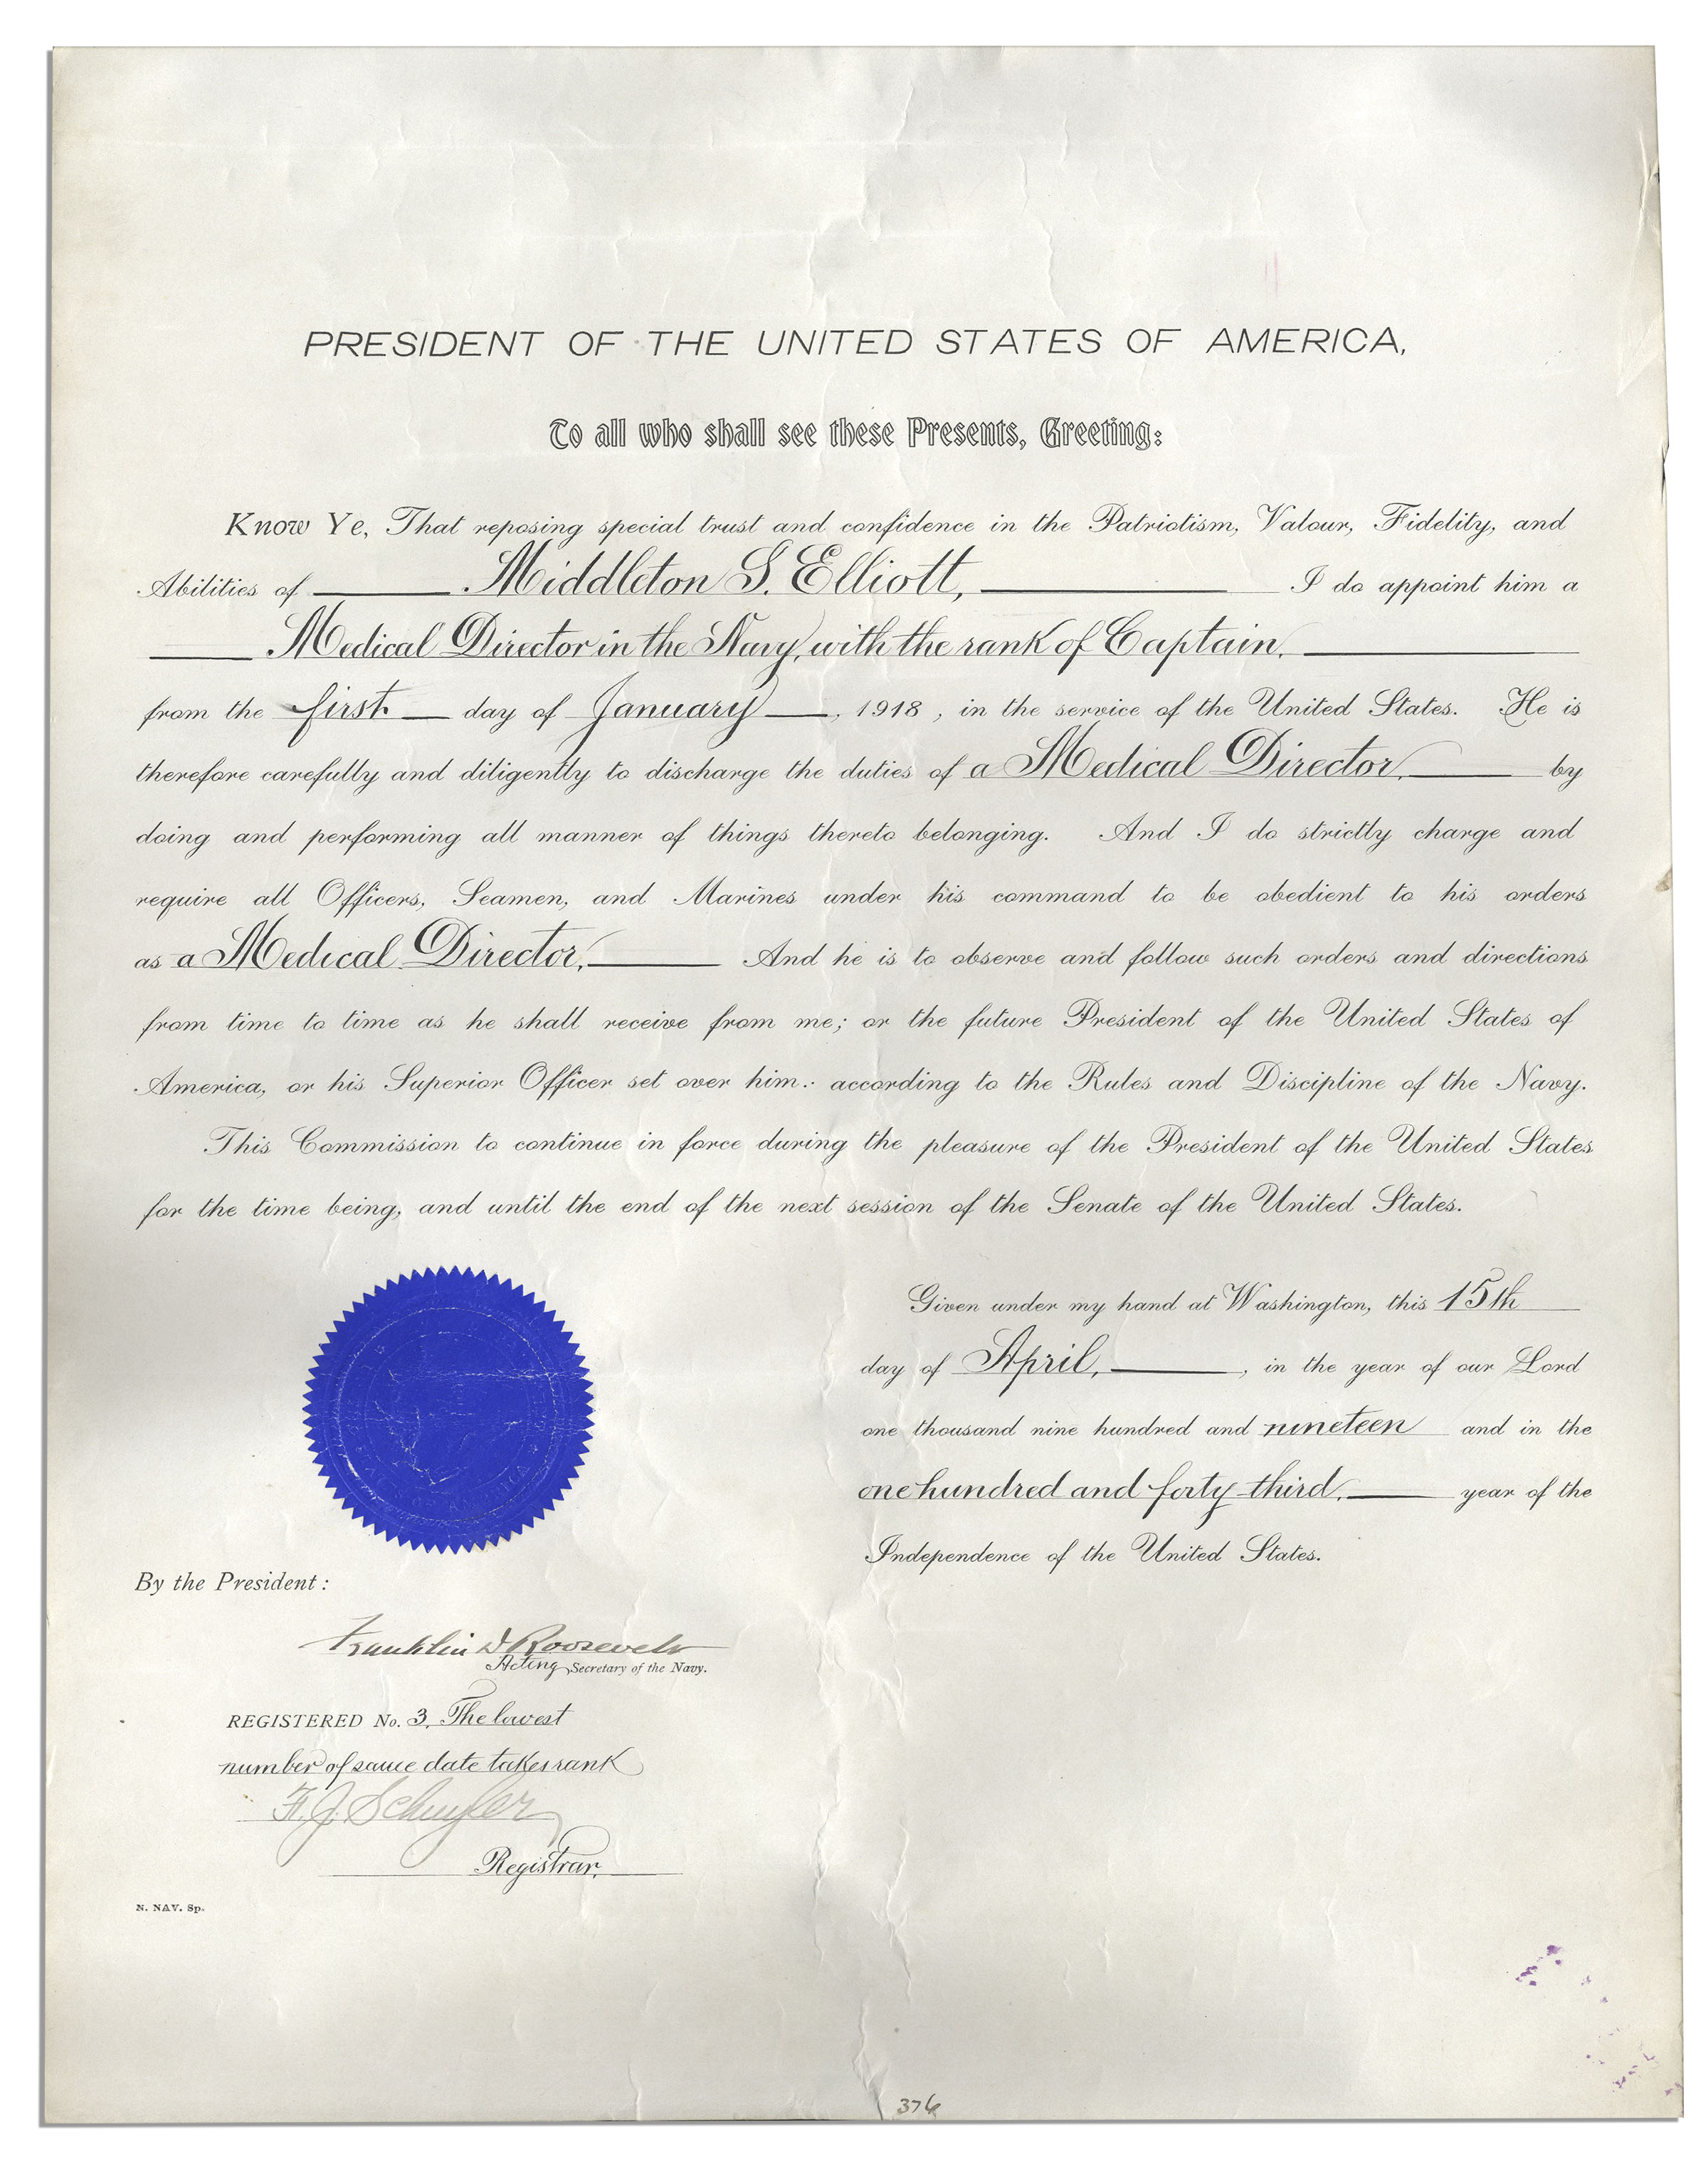 PRESIDENT OF THE UNITED STATES OF AMERICA,
To all who shall see these Presents, Greeting:
Know Ye, That reposing special trust and confidence in the Patriotism, Valour, Fidelity, and
Abilities of Middleton S. Elliott, I do appoint him a
Medical Director in the Navy, with the rank of Captain,
from the first day of January, 1918, in the service of the United States. He is
therefore carefully and diligently to discharge the duties of a Medical Director, by
doing and performing all manner of things thereto belonging. And I do strictly charge and
require all Officers, Seamen, and Marines under his command to be obedient to his orders
as a Medical Director, And he is to observe and follow such orders and directions
from time to time as he shall receive from me; or the future President of the United States of
America, or his Superior Officer set over him: according to the Rules and Discipline of the Navy.
This Commission to continue in force during the pleasure of the President of the United States
for the time being, and until the end of the next session of the Senate of the United States.
Given under my hand at Washington, this 15th
day of April, in the year of our Lord
one thousand nine hundred and nineteen and in the
one hundred and forty third, year of the
Independence of the United States.
By the President:
Franklin D Roosevelt
Acting Secretary of the Navy.
REGISTERED No. 3, The lowest
number of same date takes rank
F. J. Schuyler
Registrar.
N. NAV. Sp.
376